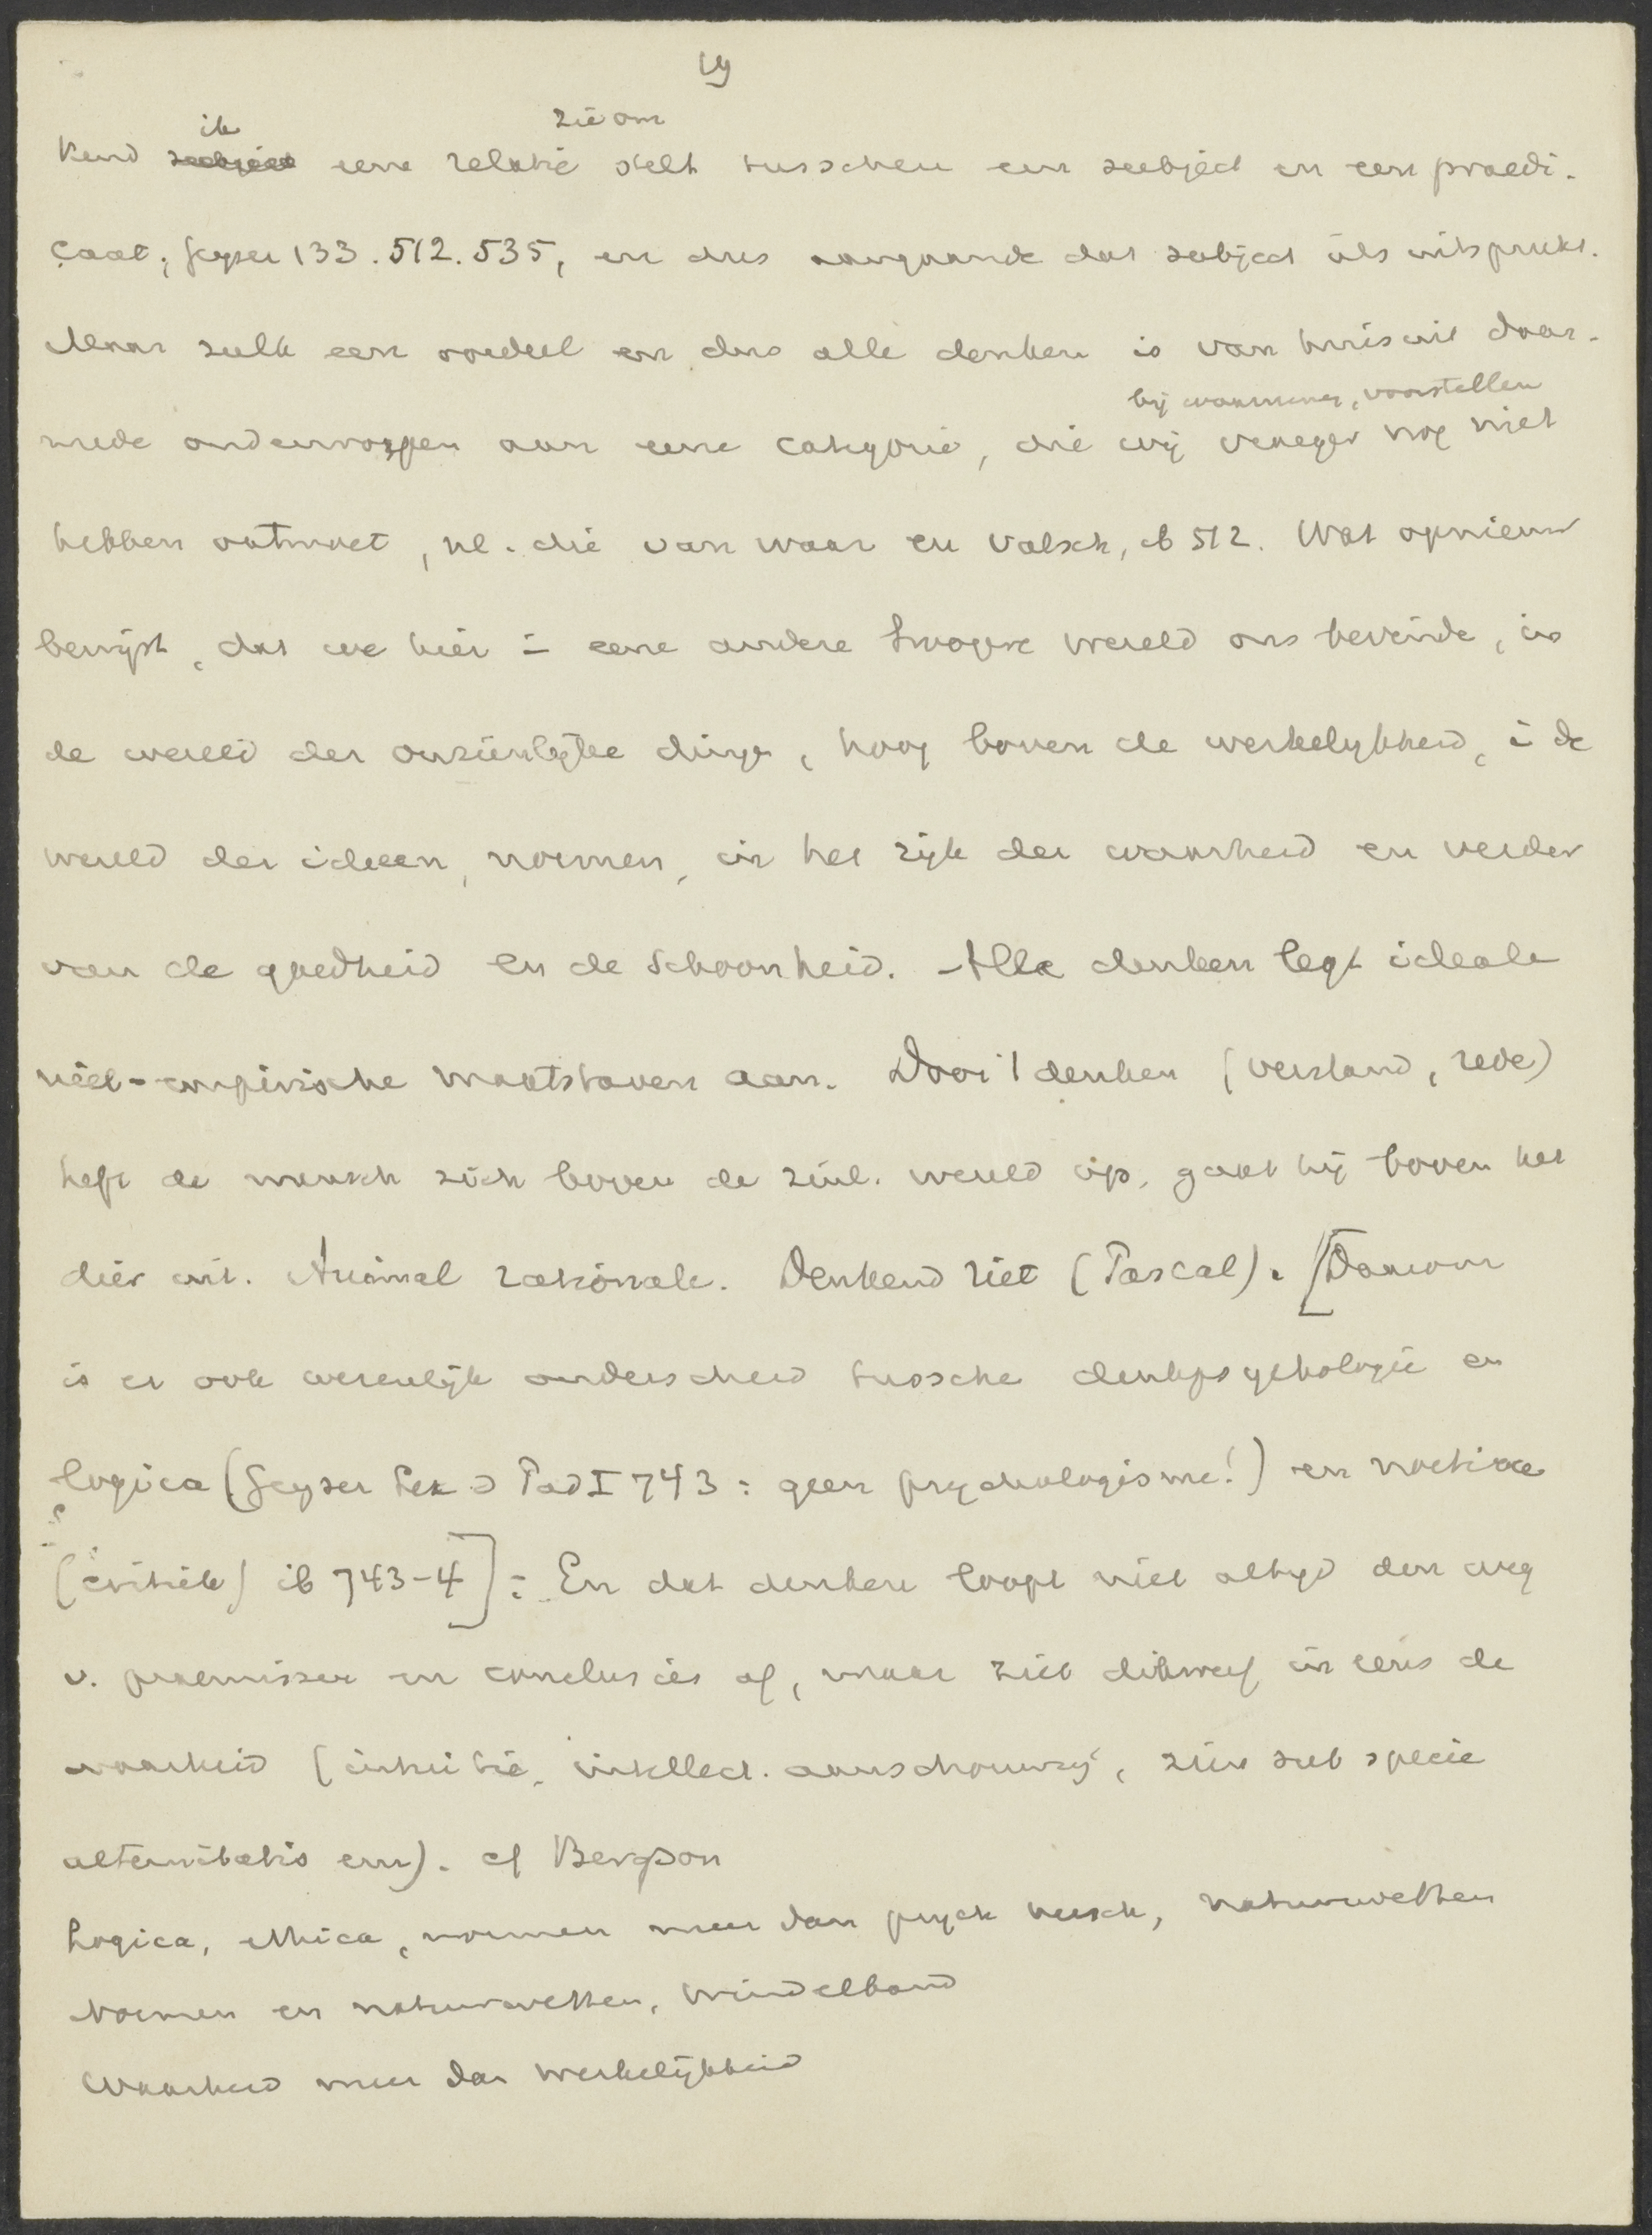 19
ik zie om
kend subject eene relatie stelt tusschen een subject en een praedi-
caat, Geyser 133. 512. 535, en dus aangaande dat subject iets uitspreekt.
Maar zulk een oordeel en dus alle denken is van huis uit daar-
bij waarneming, voorstellen
mede onderworpen aan eene categorie, die wij vroeger nog niet
hebben ontmoet, nl. die van waar en valsch, ib 512. Wat opnieuw
bewijst, dat we hier in eene andere hoogere wereld ons bevinde, in
de wereld der onzienlijke dinge, hoog boven de werkelijkheid, i de
wereld der ideeen, normen, in het rijk der waarheid en verder
van de goedheid en de schoonheid. Alle denken legt ideale
niet-empirische maatstaven aan. Door 't denken (verstand, rede)
heft de mensch zich boven de zinl. wereld op, gaat hij boven het
dier uit. Animal rationale. Denkend riet (Pascal). [Daarom
is er ook wezenlijk onderscheid tussche denkpsychologie en
logica (Geyser Lex d Päd I 743: geen psychologisme!) en noetica
(critiek) ib 743-4]: En dat denken loopt niet altijd den weg
v. praemissen en conclusies af, maar ziet dikwerf in eens de
waarheid (intuitie, intellect. aanschouwing, zien sub specie
aeternitatis enz). cf Bergson
Logica, ethica, normen meer dan psych. natuurwetten
Normen en natuurwetten, Windelband
Waarheid meer dan werkelijkheid